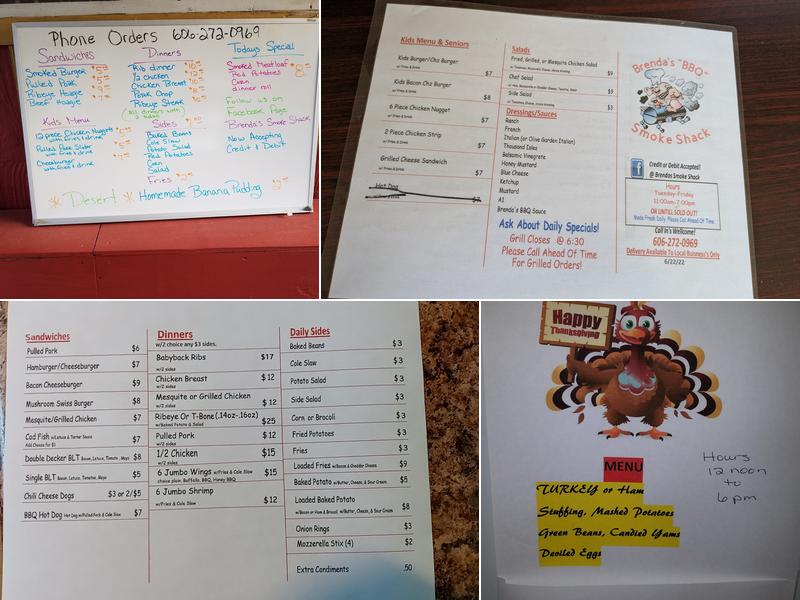 Phone Orders 606-272-0969
Sandwiches
Smoked Burger
Pulled Pork
Ribeye Hoagie
Beef Hoagie
Kids Menu
12 piece Chicken Nuggets
with fries & drink
Pulled Pork Slider
with fries & drink
Cheeseburger
with fries & drink
Dinners
Rib dinner
1/2 Chicken
Chicken Breast
Pork Chop
Ribeye Steak
(all dinners with 2 sides)
Sides
Baked Beans
Cole Slaw
Potato Salad
Red Potatoes
Corn
Salad
Fries
Todays Special
Smoked Meatloaf
Red Potatoes
Corn
dinner roll
Follow us on
Facebook Page
Brenda's Smoke Shack
Now Accepting
Credit & Debit
Desert Homemade Banana Pudding
Kids Menu & Seniors
Kids Burger/Chz Burger
w/ Fries & Drink $7
Kids Bacon Chz Burger
w/ Fries & Drink $8
6 Piece Chicken Nugget
w/ Fries & Drink $7
2 Piece Chicken Strip
w/ Fries & Drink $7
Grilled Cheese Sandwich
w/ Fries & Drink $7
Hot Dog
$7
Salads
Fried, Grilled, or Mesquite Chicken Salad
$9
Chef Salad
$9
Side Salad
$3
Dressings/Sauces
Ranch
French
Italian (or Olive Garden Italian)
Thousand Isles
Balsamic Vinegrete
Honey Mustard
Blue Cheese
Ketchup
Mustard
A1
Brenda's BBQ Sauce
Ask About Daily Specials!
Grill Closes @ 6:30
Please Call Ahead Of Time
For Grilled Orders!
Brenda's "BBQ"
Smoke Shack
f
Credit or Debit Accepted!
@ Brendas Smoke Shack
Hours
Tuesday-Friday
11:00am-7:00pm
OR UNTILL SOLD OUT!
Made Fresh Daily, Please Call Ahead Of Time
Call In's Welcome!
606-272-0969
Delivery Available To Local Buisness's Only
6/22/22
Sandwiches
Pulled Pork $6
Hamburger/Cheeseburger $7
Bacon Cheeseburger $9
Mushroom Swiss Burger $8
Mesquite/Grilled Chicken $7
Cod Fish w/Letuce & Tarter Sauce $7
Add Cheese for $1
Double Decker BLT Bacon, Letuce, Tomato, Mayo $8
Single BLT Bacon, Letuce, Tomatoe, Mayo $5
Chili Cheese Dogs $3 or 2/$5
BBQ Hot Dog Hot Dog w/Pulled Pork & Cole Slaw $7
Dinners
w/2 choice any $3 sides.
Babyback Ribs $17
w/2 sides
Chicken Breast $12
w/2 sides
Mesquite or Grilled Chicken
w/2 sides $12
Ribeye Or T-Bone(.14oz-.16oz)
w/Baked Potato & Salad $25
Pulled Pork $12
w/2 sides
1/2 Chicken $15
w/2 sides
6 Jumbo Wings w/Fries & Cole Slaw $15
choice plain, Buffallo, BBQ, Honey BBQ
6 Jumbo Shrimp
w/Fries & Cole Slaw $12
Daily Sides
Baked Beans $3
Cole Slaw $3
Potato Salad $3
Side Salad $3
Corn or Brocoli $3
Fried Potatoes $3
Fries $3
Loaded Fries w/Bacon & Chedder Cheese $9
Baked Potato w/Butter, Cheese, & Sour Cream $5
Loaded Baked Potato
w/Bacon or Ham & Brocoli w/Butter, Cheese, & Sour Cream $8
Onion Rings $3
Mozzerella Stix (4) $2
Extra Condiments .50
Happy
Thanksgiving
MENU
TURKEY or Ham
Stuffing, Mashed Potatoes
Green Beans, Candied Yams
Deviled Eggs
Hours
12 noon
to
6 pm